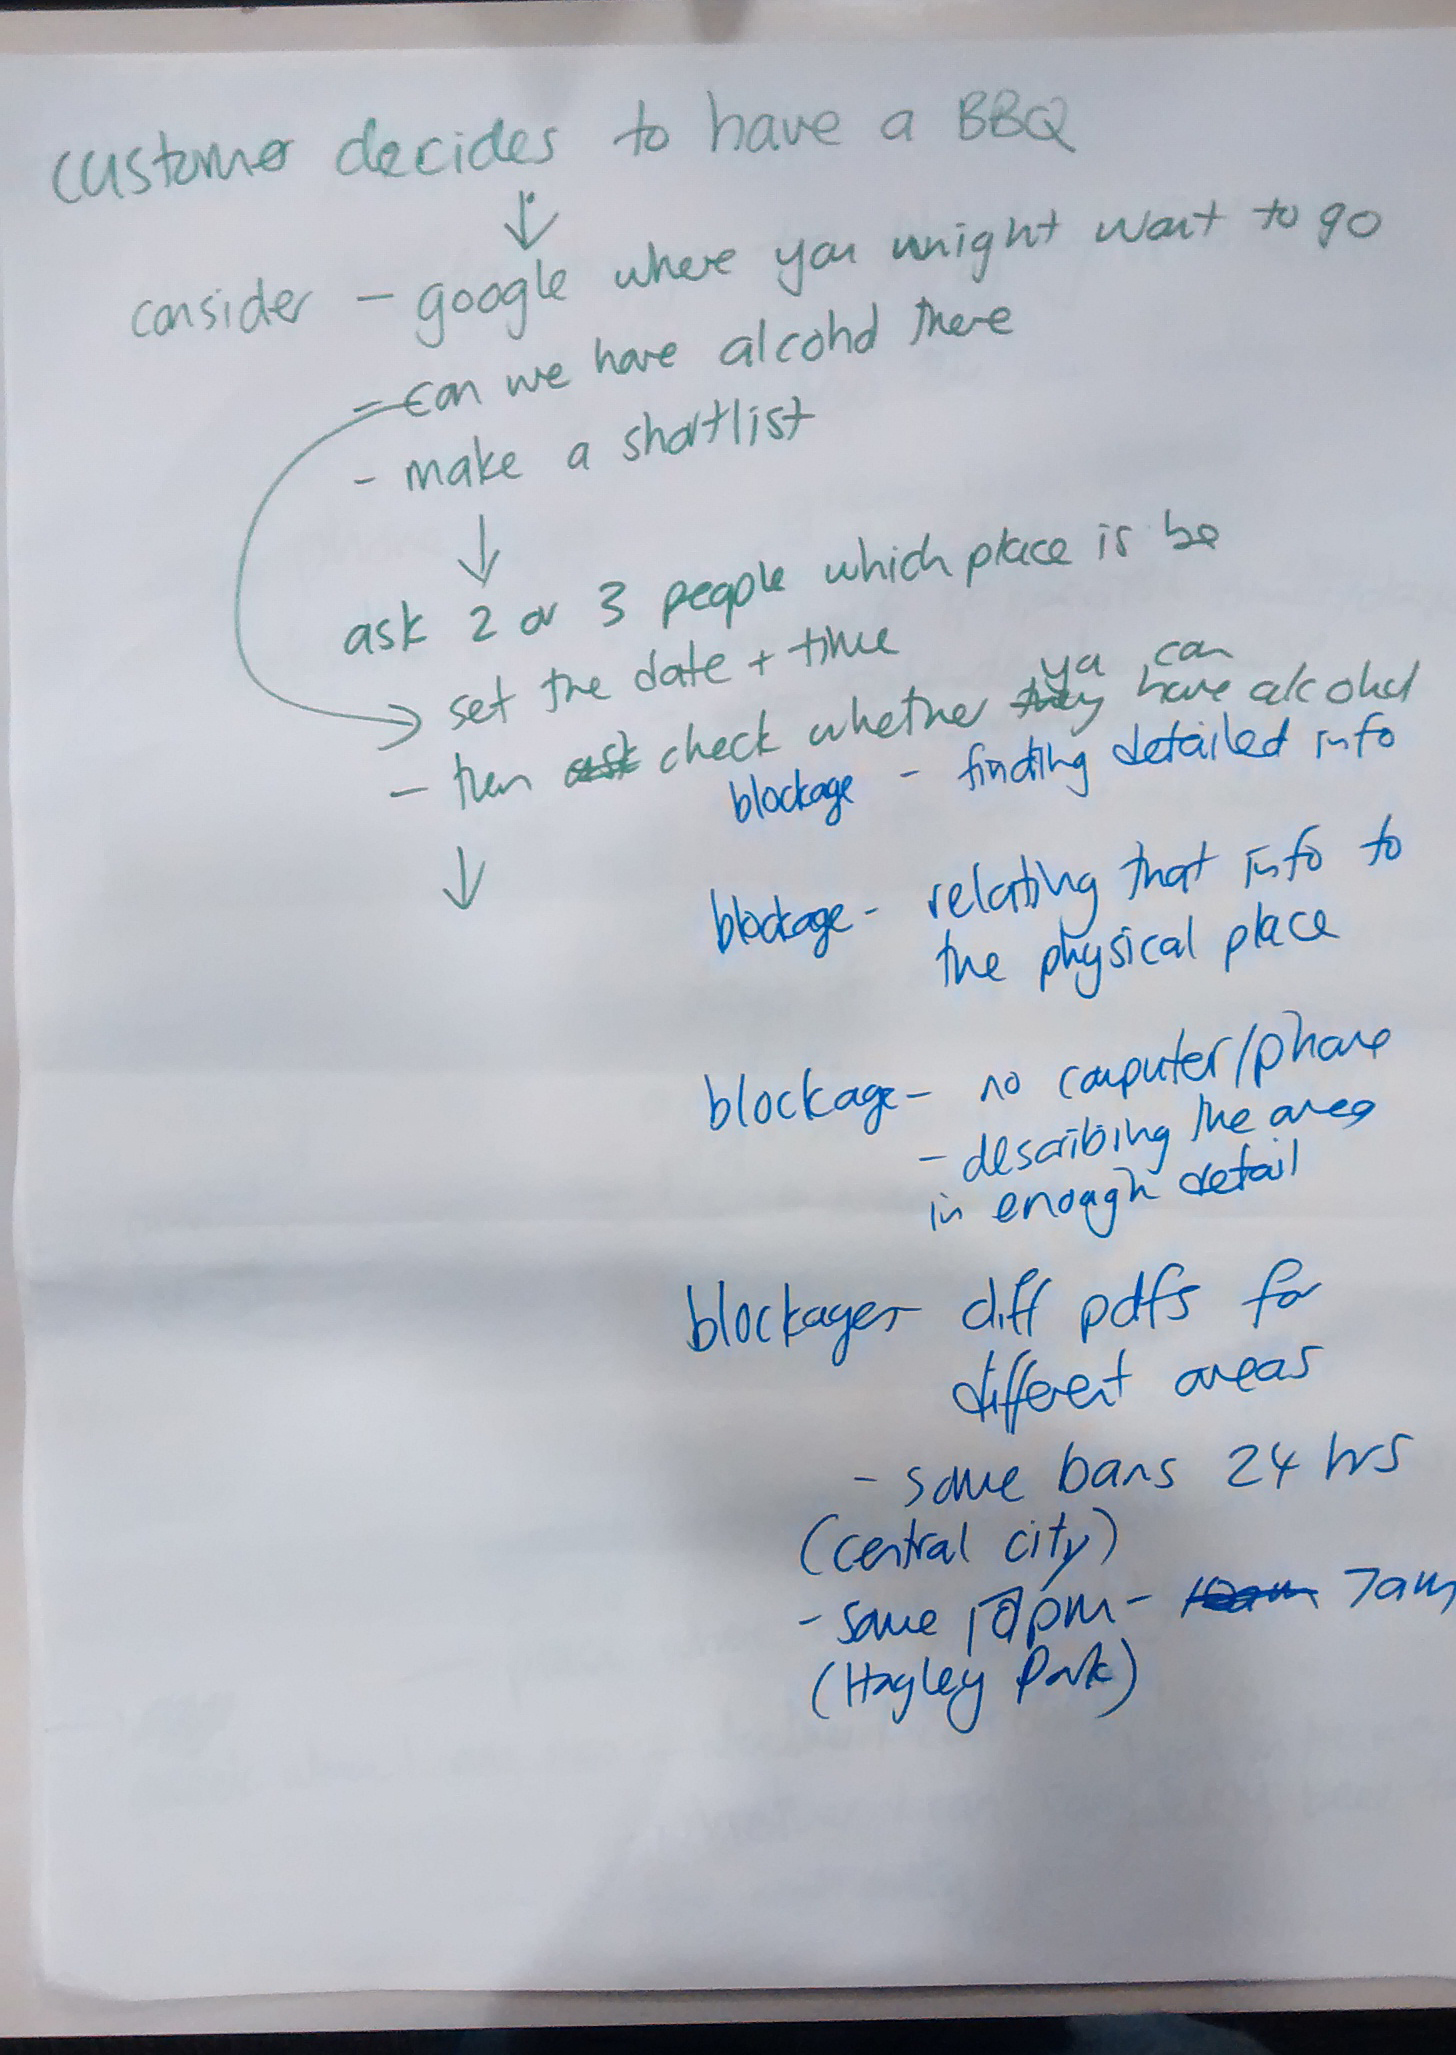 customer decides to have a BBQ
↓
consider - google where you might want to go
- can we have alcohol there
- make a shortlist
↓
ask 2 or 3 people which place is be
→ set the date + time
ya can
- then ask check whether they have alcohol
blockage - finding detailed info
↓
blockage - relating that info to
the physical place
blockage - no computer/phone
- describing the area
in enough detail
blockages - diff pdfs for
different areas
- some bans 24 hrs
(central city)
- some 10pm - 7am
(Hagley Park)